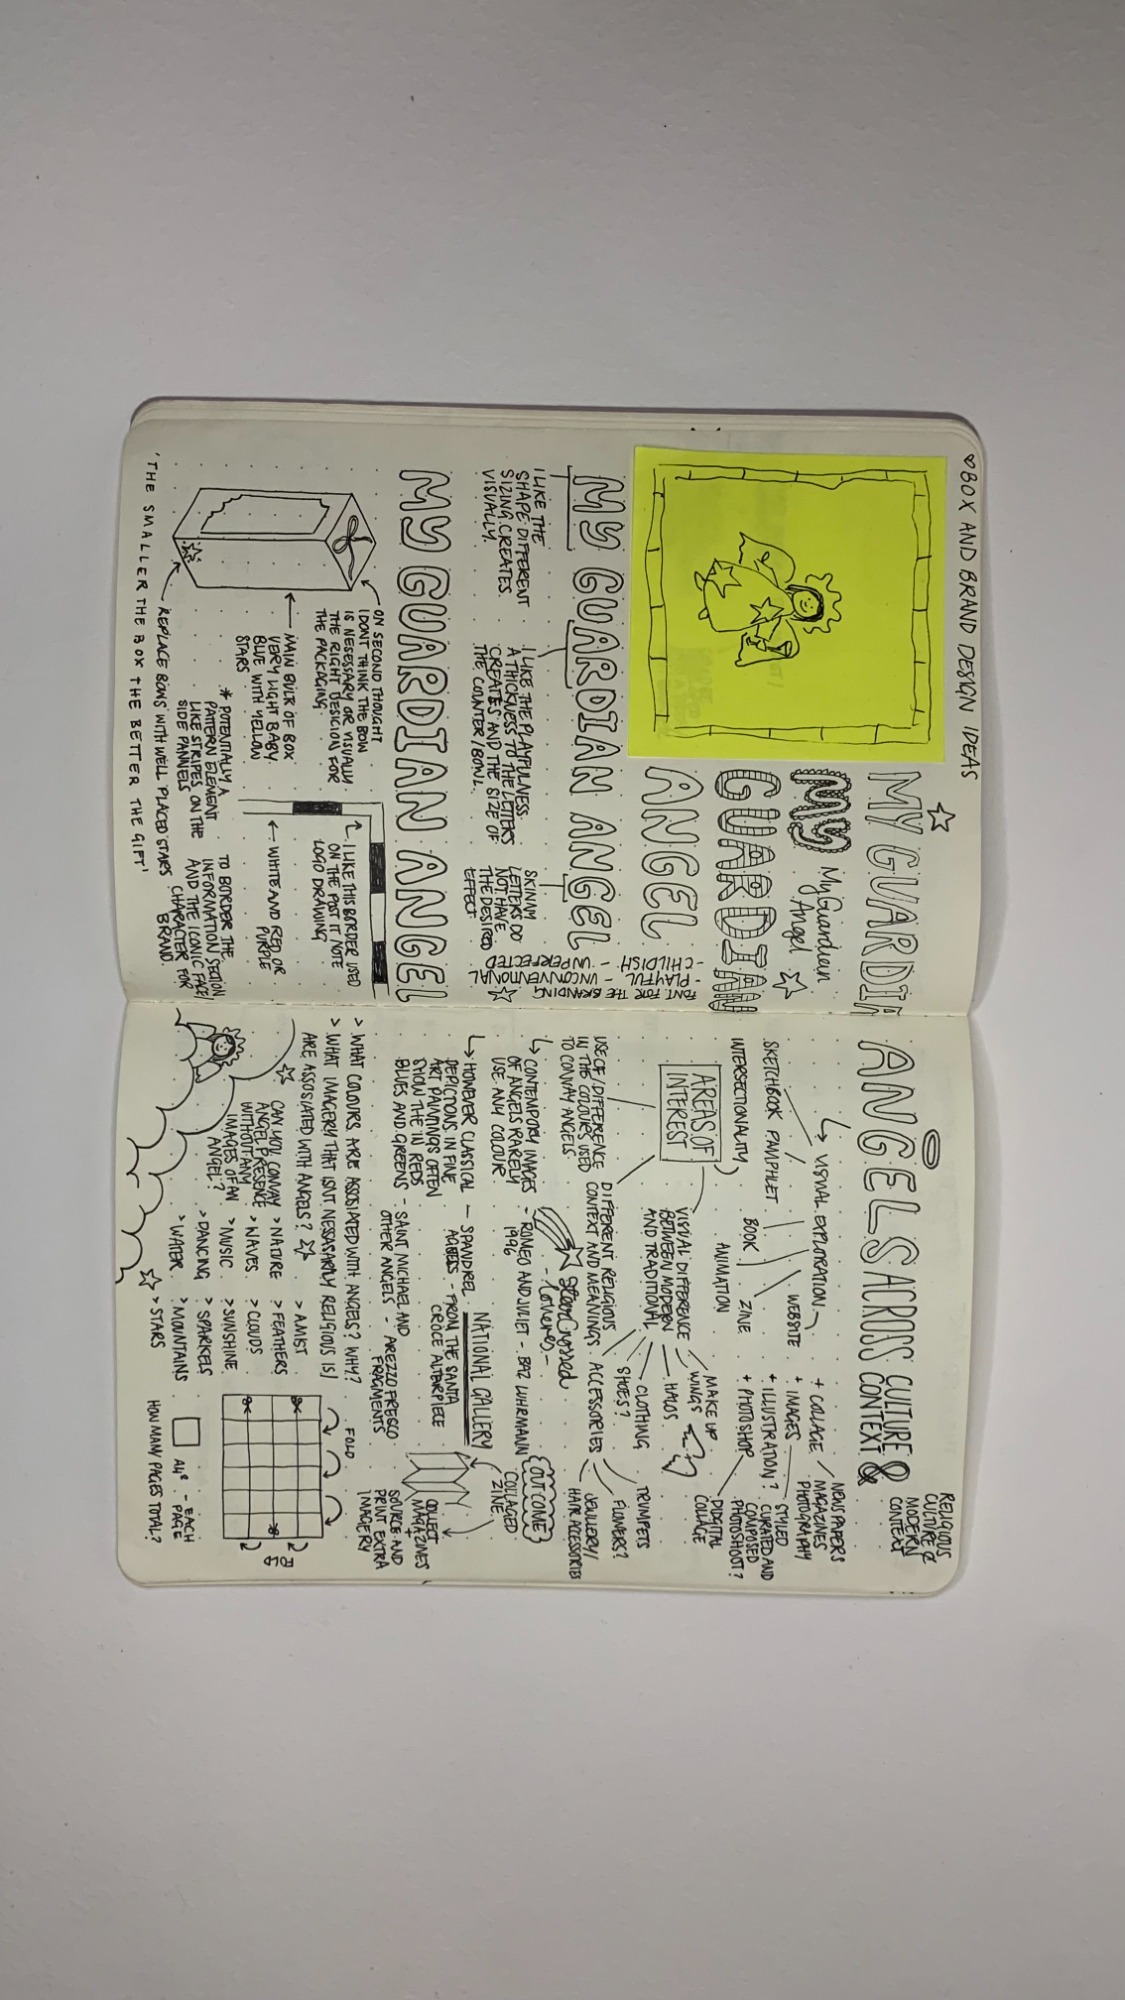 ♡BOX AND BRAND DESIGN IDEAS
MY GUARDIA
MY
My Guardian
Angel
GUARDIAN
ANGEL
MY GUARDIAN ANGEL
FONT FOR THE BRANDING
- PLAYFUL - UNCONVENTIONAL
- CHILDISH - UNPERFECTED
I LIKE THE
SHAPE DIFFERENT
SIZING CREATES
VISUALLY.
I LIKE THE PLAYFULNESS
A THICKNESS TO THE LETTERS
CREATES AND THE SIZE OF
THE COUNTER/BOWL.
SKINNY
LETTERS DO
NOT HAVE
THE DESIRED
EFFECT
MY GUARDIAN ANGEL
ON SECOND THOUGHT
I DONT THINK THE BOW
IS NECESSARY OR VISUALLY
THE RIGHT DESIGN FOR
THE PACKAGING
I LIKE THIS BORDER USED
ON THE POST IT NOTE
LOGO DRAWING
MAIN BULK OF BOX
VERY LIGHT BABY
BLUE WITH YELLOW
STARS
WHITE AND RED OR
PURPLE
* POTENTIALLY A
PATTERN ELEMENT
LIKE STRIPES ON THE
SIDE PANNELS
TO BORDER THE
INFORMATION SECTION
AND THE ICONIC FACE/
CHARACTER FOR
BRAND.
REPLACE BOWS WITH WELL PLACED STARS
'THE SMALLER THE BOX THE BETTER THE GIFT'
ANGELS ACROSS CULTURE &
CONTEXT &
RELIGIOUS
CULTURE &
MODERN
CONTEXT
VISUAL EXPLORATION
SKETCHBOOK PAMPHLET
BOOK
ZINE
WEBSITE
ANIMATION
+ COLLAGE
+ IMAGES
+ ILLUSTRATION?
+ PHOTOSHOP
NEWSPAPERS
MAGAZINES
PHOTOGRAPHY
STYLED
CURATED AND
COMPOSED
PHOTOSHOOT?
DIDGITAL
COLLAGE
INTERSECTIONALITY
AREAS OF
INTEREST
VISUAL DIFFERENCE
BETWEEN MODERN
AND TRADITIONAL
MAKE UP
WINGS
HALOS
CLOTHING
SHOES?
ACCESSORIES
TRUMPETS
FLOWERS?
JEWLLERY/
HAIR ACCESSORIES
USE OF/DIFFERENCE
IN THE COLOURS USED
TO CONVAY ANGELS
DIFFERENT RELIGIOUS
CONTEXT AND MEANINGS
Star Crossed
- Lovers -
CONTEMPORY IMAGES
OF ANGELS RARELY
USE ANY COLOUR
- ROMEO AND JULIET - BAZ LUHRMANN
1996
OUTCOME
COLLAGED
ZINE
NATIONAL GALLERY
HOWEVER CLASSICAL
DEPICTIONS IN FINE
ART PAINTINGS OFTEN
SHOW THE IN REDS
BLUES AND GREENS
- SPANDREL
ANGELS - FROM THE SANTA
CROCE ALTARPIECE
- SAINT MICHAEL AND
OTHER ANGELS - AREZZO FRESCO
FRAGMENTS
COLLECT
MAGAZINES
+
SOURCE AND
PRINT EXTRA
IMAGERY
> WHAT COLOURS ARE ASSOCIATED WITH ANGELS? WHY?
> WHAT IMAGERY THAT ISNT NESSASARLY RELIGIOUS IS/
ARE ASSOSIATED WITH ANGELS?
CAN YOU CONVAY
ANGEL PRESENCE
WITHOUT ANY
IMAGES OF AN
ANGEL?
> AMIST
> NATURE > FEATHERS
> WAVES > CLOUDS
> MUSIC > SUNSHINE
> DANCING > SPARKELS
> WATER > MOUNTAINS
> STARS
FOLD
FOLD
- EACH
PAGE
HOW MANY PAGES TOTAL?